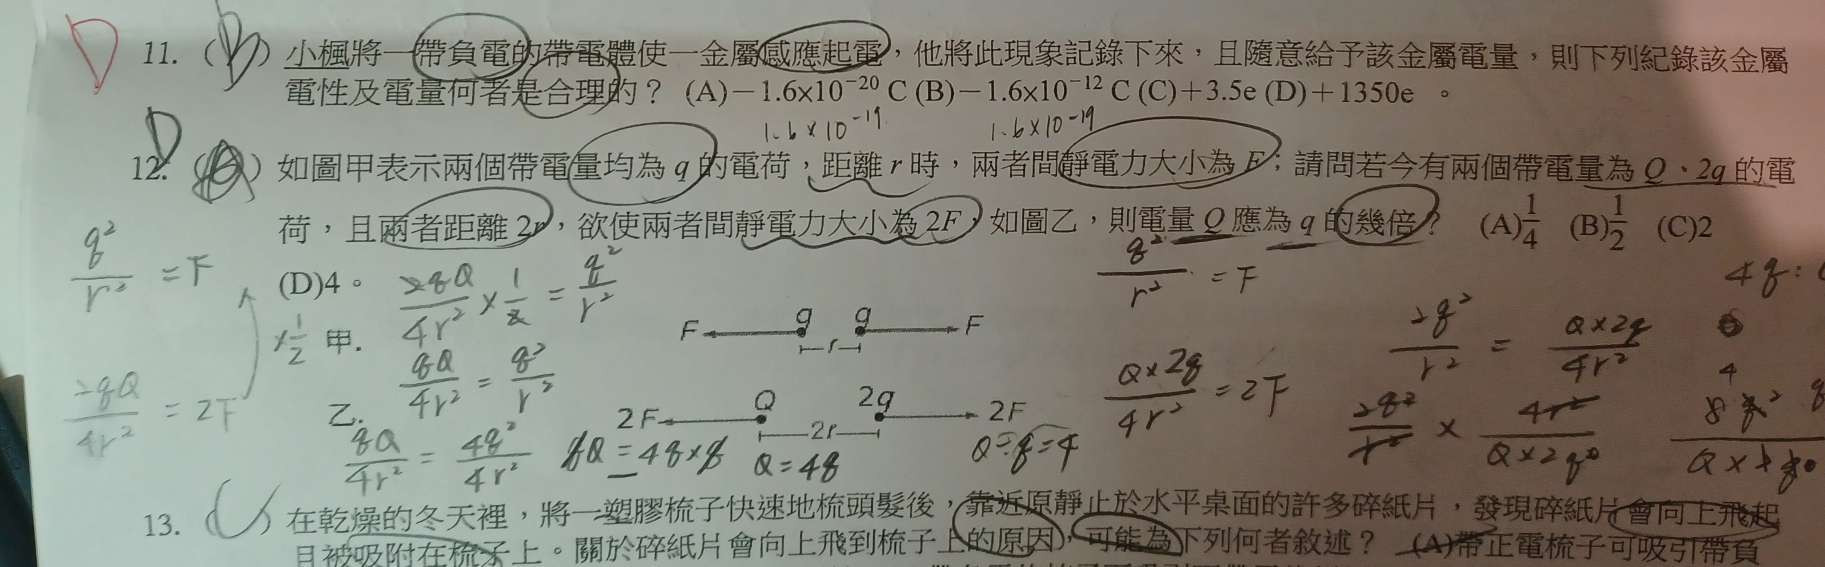 D 11. (B) 小楓將一帶負電的帶電體使一金屬感應起電，他將此現象記錄下來，且隨意給予該金屬電量，則下列紀錄該金屬
電性及電量何者是合理的？ (A)－1.6×10⁻²⁰ C (B)－1.6×10⁻¹² C (C)＋3.5e (D)＋1350e 。
1.6×10⁻¹⁹ 1.6×10⁻¹⁹
D
12. ( ) 如圖甲表示兩個帶電量均為 q 的電荷，距離 r 時，兩者間靜電力大小為 F；請問若今有兩個帶電量為 Q、2q 的電
荷，且兩者距離 2r，欲使兩者間靜電力大小為 2F，如圖乙，則電量 Q 應為 q 的幾倍？ (A)1/4 (B)1/2 (C)2
(D)4。
q²/r² = F
2qQ/4r² × 1/2 = q²/r²
q²/r² = F
4q:
×1/2
甲.
F q q F
r
2q²/r² = Q×2q/4r²
qQ/4r² = q²/r²
2qQ/4r² = 2F
乙.
2F Q 2q 2F
2r
Q×2q/4r² = 2F
2q²/r² × 4r²/Q×2q
qQ/4r² = 4q²/4r²
qQ = 4q×q
Q = 4q
Q÷q=4
13. ( ) 在乾燥的冬天裡，將一塑膠梳子快速地梳頭髮後，靠近原靜止於水平桌面的許多碎紙片，發現碎紙片會向上飛起
且被吸附在梳子上。關於碎紙片會向上飛到梳子上的原因，可能為下列何者敘述？ (A)帶正電梳子可吸引帶負